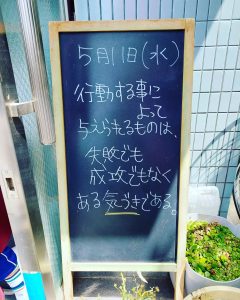 5月11日(水)
行動する事に
よって
与えられるものは、
失敗でも
成功でもなく
ある気づきである。